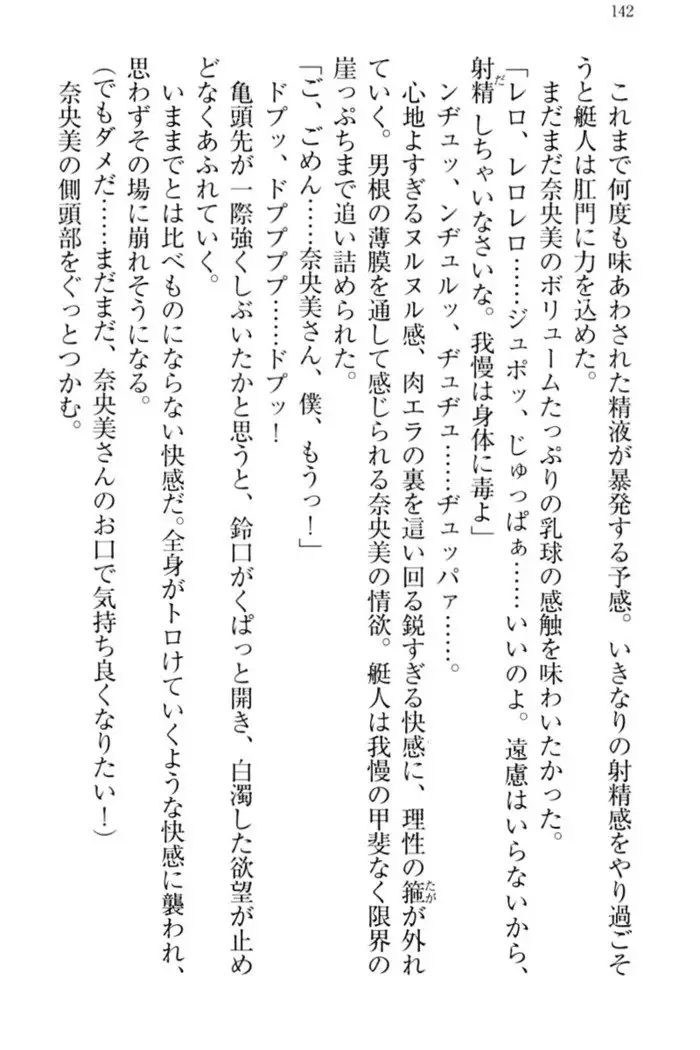 142
これまで何度も味あわされた精液が暴発する予感。いきなりの射精感をやり過ごそ
うと艇人は肛門に力を込めた。
まだまだ奈央美のボリュームたっぷりの乳球の感触を味わいたかった。
「レロ、レロレロ……ジュポッ、じゅっぱぁ……いいのよ。遠慮はいらないから、
射精しちゃいなさいな。我慢は身体に毒よ」
だ
ンヂュッ、ンヂュルッ、ヂュヂュ……ヂュッパァ……。
心地よすぎるヌルヌル感、肉エラの裏を這い回る鋭すぎる快感に、理性の箍が外れ
たが
ていく。男根の薄膜を通して感じられる奈央美の情欲。艇人は我慢の甲斐なく限界の
崖っぷちまで追い詰められた。
「ご、ごめん……奈央美さん、僕、もうっ！」
ドプッ、ドププププ……ドプッ！
亀頭先が一際強くしぶいたかと思うと、鈴口がくぱっと開き、白濁した欲望が止め
どなくあふれていく。
いままでとは比べものにならない快感だ。全身がトロけていくような快感に襲われ、
思わずその場に崩れそうになる。
（でもダメだ……まだまだ、奈央美さんのお口で気持ち良くなりたい！）
奈央美の側頭部をぐっとつかむ。